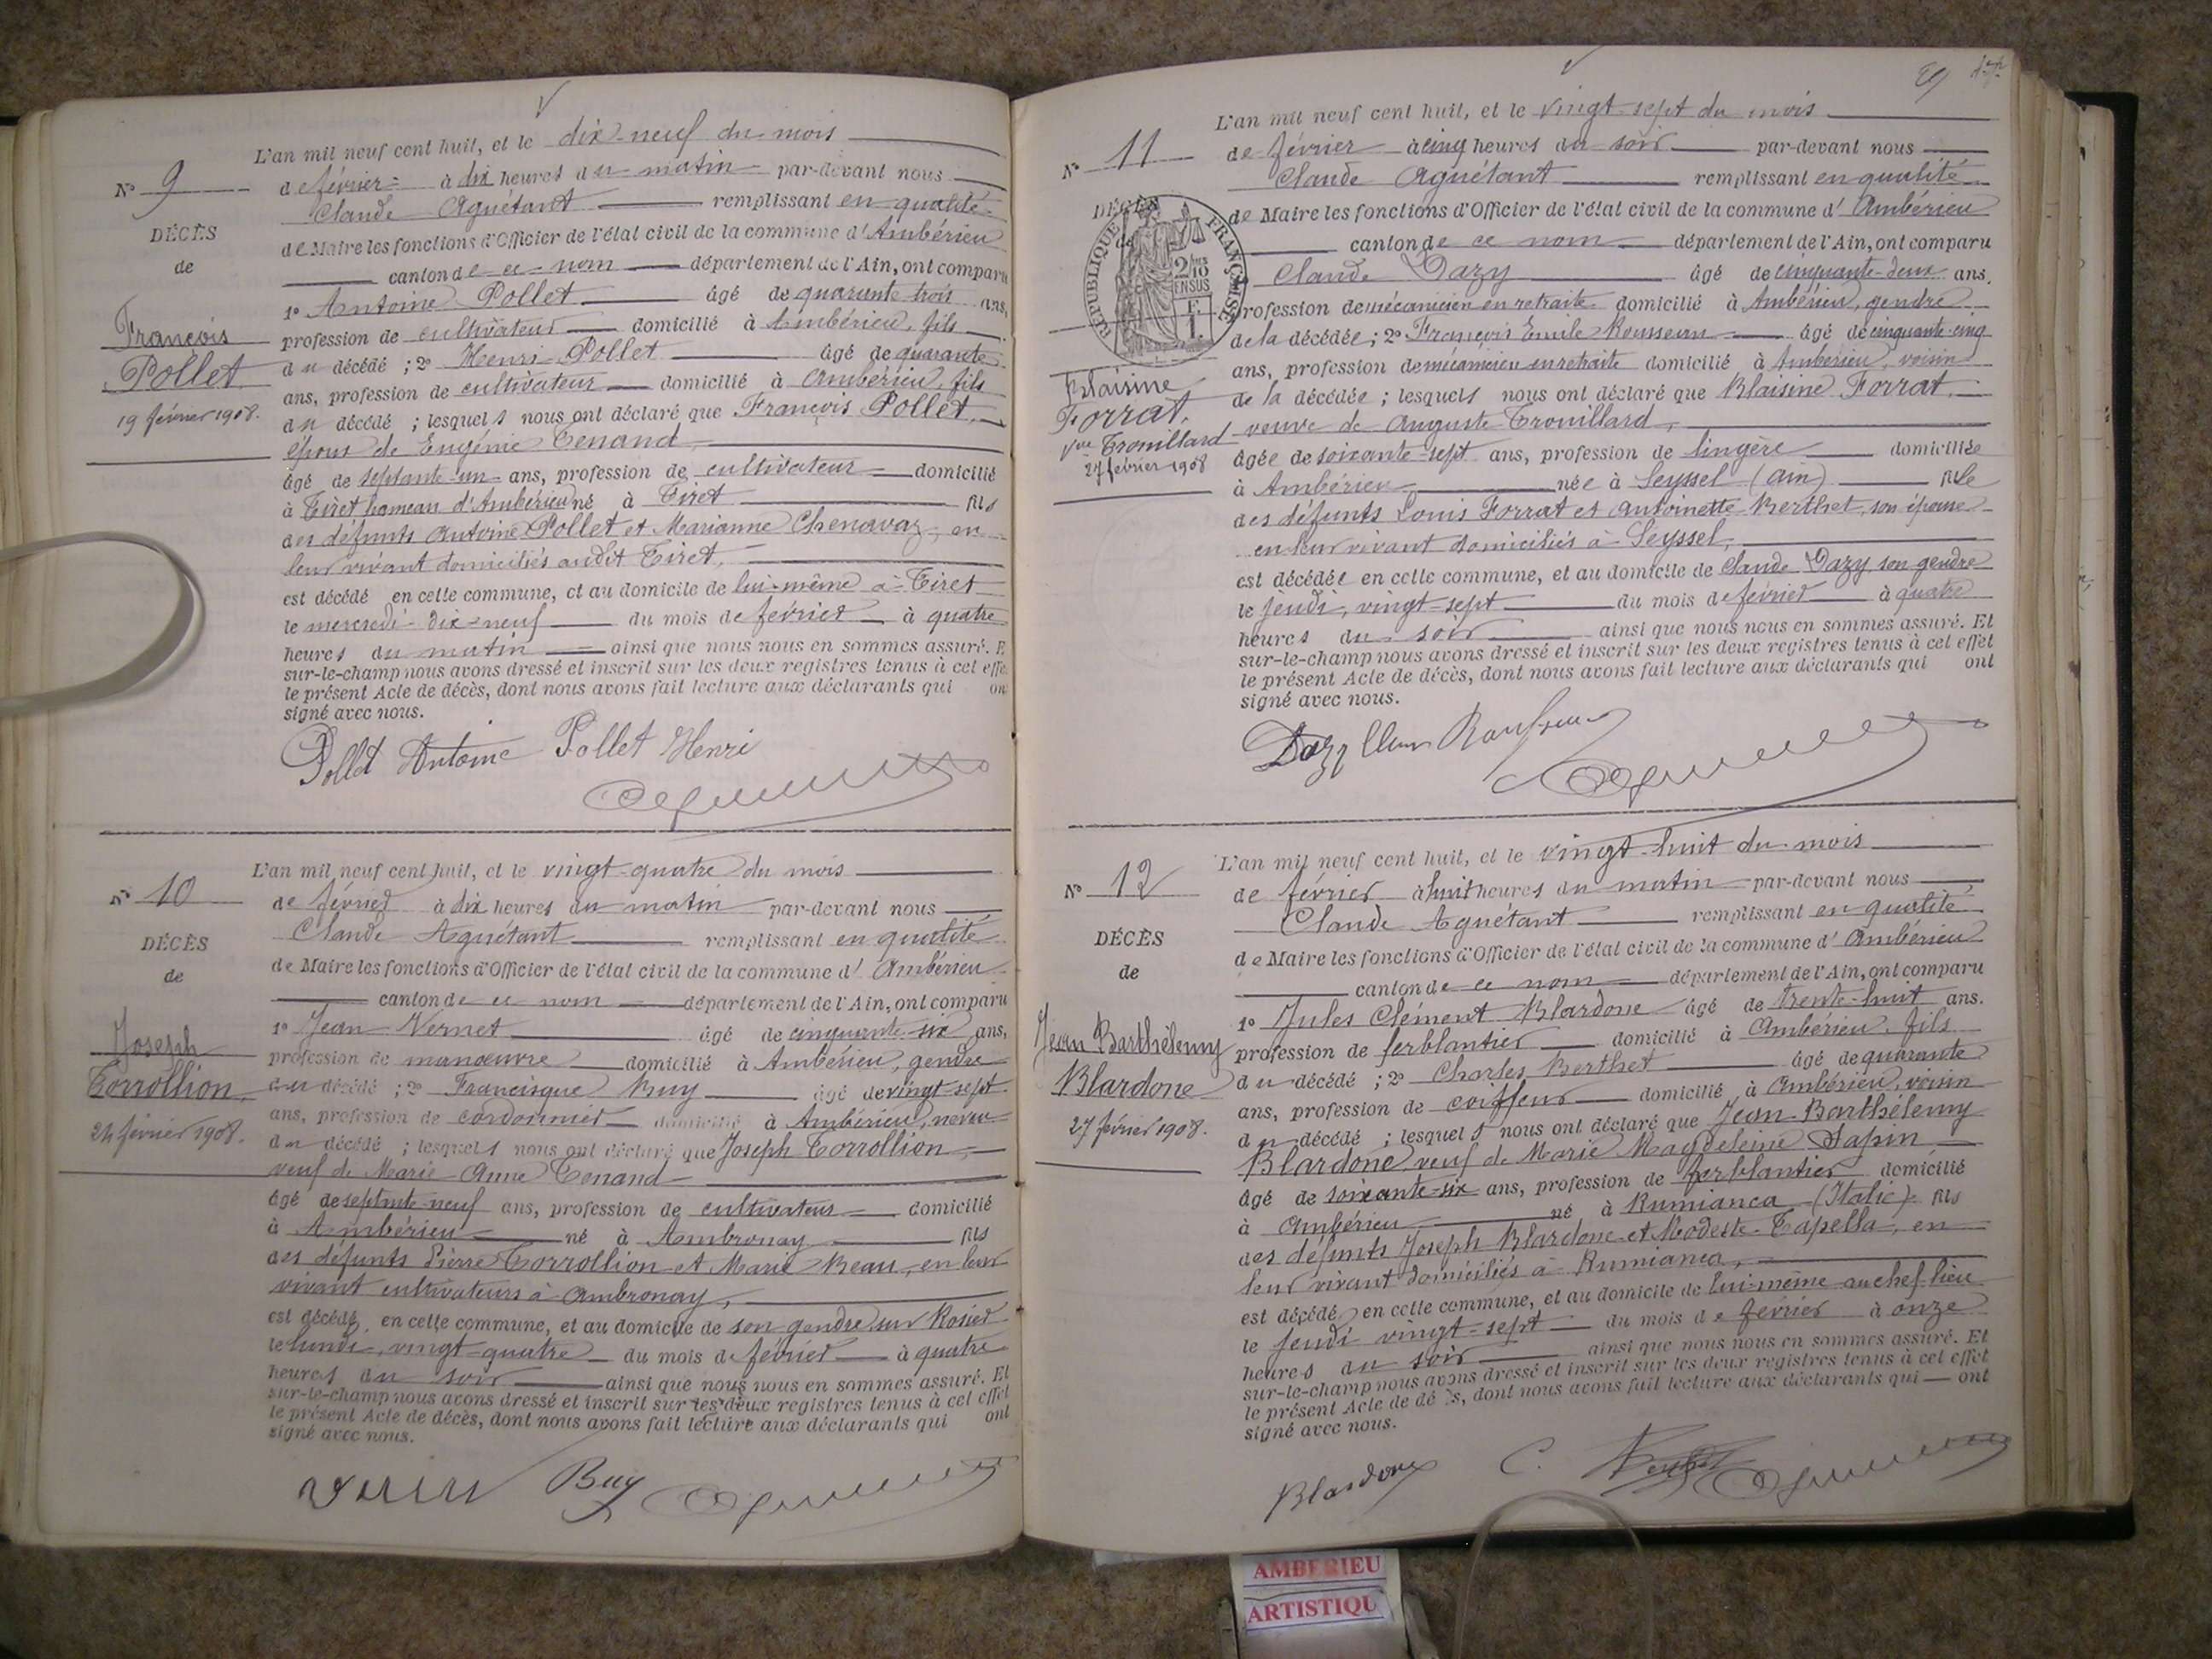 L'an mil neuf cent huit, et le dix-neuf du mois
N° 9
de février à dix heures du matin par-devant nous
Claude Aguétant remplissant en qualité
DÉCÈS
de Maire les fonctions d'Officier de l'état civil de la commune d'Ambérieu
de
canton de ce nom département de l'Ain, ont comparu
1° Antoine Pollet âgé de quarante trois ans,
François
profession de cultivateur domicilié à Ambérieu, fils
Pollet
du décédé ; 2° Henri Pollet âgé de quarante
ans, profession de cultivateur domicilié à Ambérieu, fils
19 février 1908.
du décédé ; lesquels nous ont déclaré que François Pollet,
époux de Eugénie Tenand,
âgé de septante-un ans, profession de cultivateur domicilié
à Tiret hameau d'Ambérieu né à Tiret fils
des défunts Antoine Pollet et Marianne Chenavaz, en
leur vivant domiciliés audit Tiret,
est décédé en cette commune, et au domicile de lui-même à Tiret
le mercredi dix-neuf du mois de février à quatre
heures du matin ainsi que nous nous en sommes assuré. E
sur-le-champ nous avons dressé et inscrit sur les deux registres tenus à cet effe
le présent Acte de décès, dont nous avons fait lecture aux déclarants qui on
signé avec nous.
Pollet Antoine Pollet Henri
L'an mil neuf cent huit, et le vingt-quatre du mois
N° 10
de février à dix heures du matin par-devant nous
Claude Aguétant remplissant en qualité
DÉCÈS
de Maire les fonctions d'Officier de l'état civil de la commune d' Ambérieu
de
canton de ce nom département de l'Ain, ont comparu
1° Jean Vernet âgé de cinquante-six ans,
Joseph
profession de manœuvre domicilié à Ambérieu, gendre
Corrollion
du décédé ; 2° Francisque Buy âgé de vingt-sept
ans, profession de cordonnier domicilié à Ambérieu, neveu
24 février 1908.
du décédé ; lesquels nous ont déclaré que Joseph Corrollion,
veuf de Marie Anne Tenand
âgé de septante-neuf ans, profession de cultivateur domicilié
à Ambérieu né à Ambronay fils
des défunts Pierre Corrollion et Marie Beau, en leur
vivant cultivateurs à Ambronay,
est décédé en cette commune, et au domicile de son gendre, sur Rosier
le lundi, vingt-quatre du mois de février à quatre
heures du soir ainsi que nous nous en sommes assuré. Et
sur-le-champ nous avons dressé et inscrit sur les deux registres tenus à cet effet
le présent Acte de décès, dont nous avons fait lecture aux déclarants qui ont
signé avec nous.
Buy
L'an mil neuf cent huit, et le vingt-sept du mois
N° 11
de février à cinq heures du soir par-devant nous
Claude Aguétant remplissant en qualité
DÉCÈS
de
RÉPUBLIQUE FRANÇAISE
2/10 EN SUS
de Maire les fonctions d'Officier de l'état civil de la commune d' Ambérieu
canton de ce nom département de l'Ain, ont comparu
Claude Dazy âgé de cinquante-deux ans,
profession de mécanicien en retraite domicilié à Ambérieu, gendre
de la décédée ; 2° François Émile Rousseau âgé de cinquante-cinq
ans, profession de mécanicien en retraite domicilié à Ambérieu, voisin
Blaisine
de la décédée ; lesquels nous ont déclaré que Blaisine Forrat,
Forrat,
veuve de Auguste Trouillard,
Vve Trouillard
27 février 1908
âgée de soixante-sept ans, profession de lingère domiciliée
à Ambérieu, née à Seyssel (Ain) fille
des défunts Louis Forrat et Antoinette Berthet, son épouse
en leur vivant domiciliés à Seyssel,
est décédée en cette commune, et au domicile de Claude Dazy son gendre
le jeudi, vingt-sept du mois de février à quatre
heures du soir ainsi que nous nous en sommes assuré. Et
sur-le-champ nous avons dressé et inscrit sur les deux registres tenus à cet effet
le présent Acte de décès, dont nous avons fait lecture aux déclarants qui ont
signé avec nous.
L'an mil neuf cent huit, et le vingt-huit du mois
N° 12
de février à huit heures du matin par-devant nous
Claude Aguétant remplissant en qualité
DÉCÈS
de Maire les fonctions d'Officier de l'état civil de la commune d' Ambérieu
de
canton de ce nom département de l'Ain, ont comparu
1° Jules Clément Blardone âgé de trente-huit ans.
Jean Barthélemy
profession de ferblantier domicilié à Ambérieu, fils
Blardone
du décédé ; 2° Charles Berthet âgé de quarante
ans, profession de coiffeur domicilié à Ambérieu, voisin
27 février 1908.
du décédé ; lesquels nous ont déclaré que Jean-Barthélemy
Blardone veuf de Marie Magdeleine Sapin
âgé de soixante-six ans, profession de ferblantier domicilié
à Ambérieu, né à Rumianca (Italie) fils
des défunts Joseph Blardone et Modeste Tapella, en
leur vivant domiciliés à Rumianca,
est décédé en cette commune, et au domicile de lui-même au chef-lieu
le jeudi vingt-sept du mois de février à onze
heures du soir ainsi que nous nous en sommes assuré. Et
sur-le-champ nous avons dressé et inscrit sur les deux registres tenus à cet effet
le présent Acte de décès, dont nous avons fait lecture aux déclarants qui ont
signé avec nous.
Blardone C. Berthet
AMBERIEU
ARTISTIQU